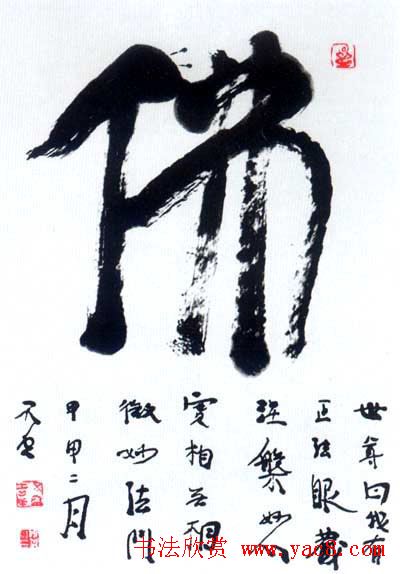 佛
世尊曰我有
正法眼藏
涅槃妙心
實相无相
微妙法門
甲申二月
书法欣赏 www.yac8.com